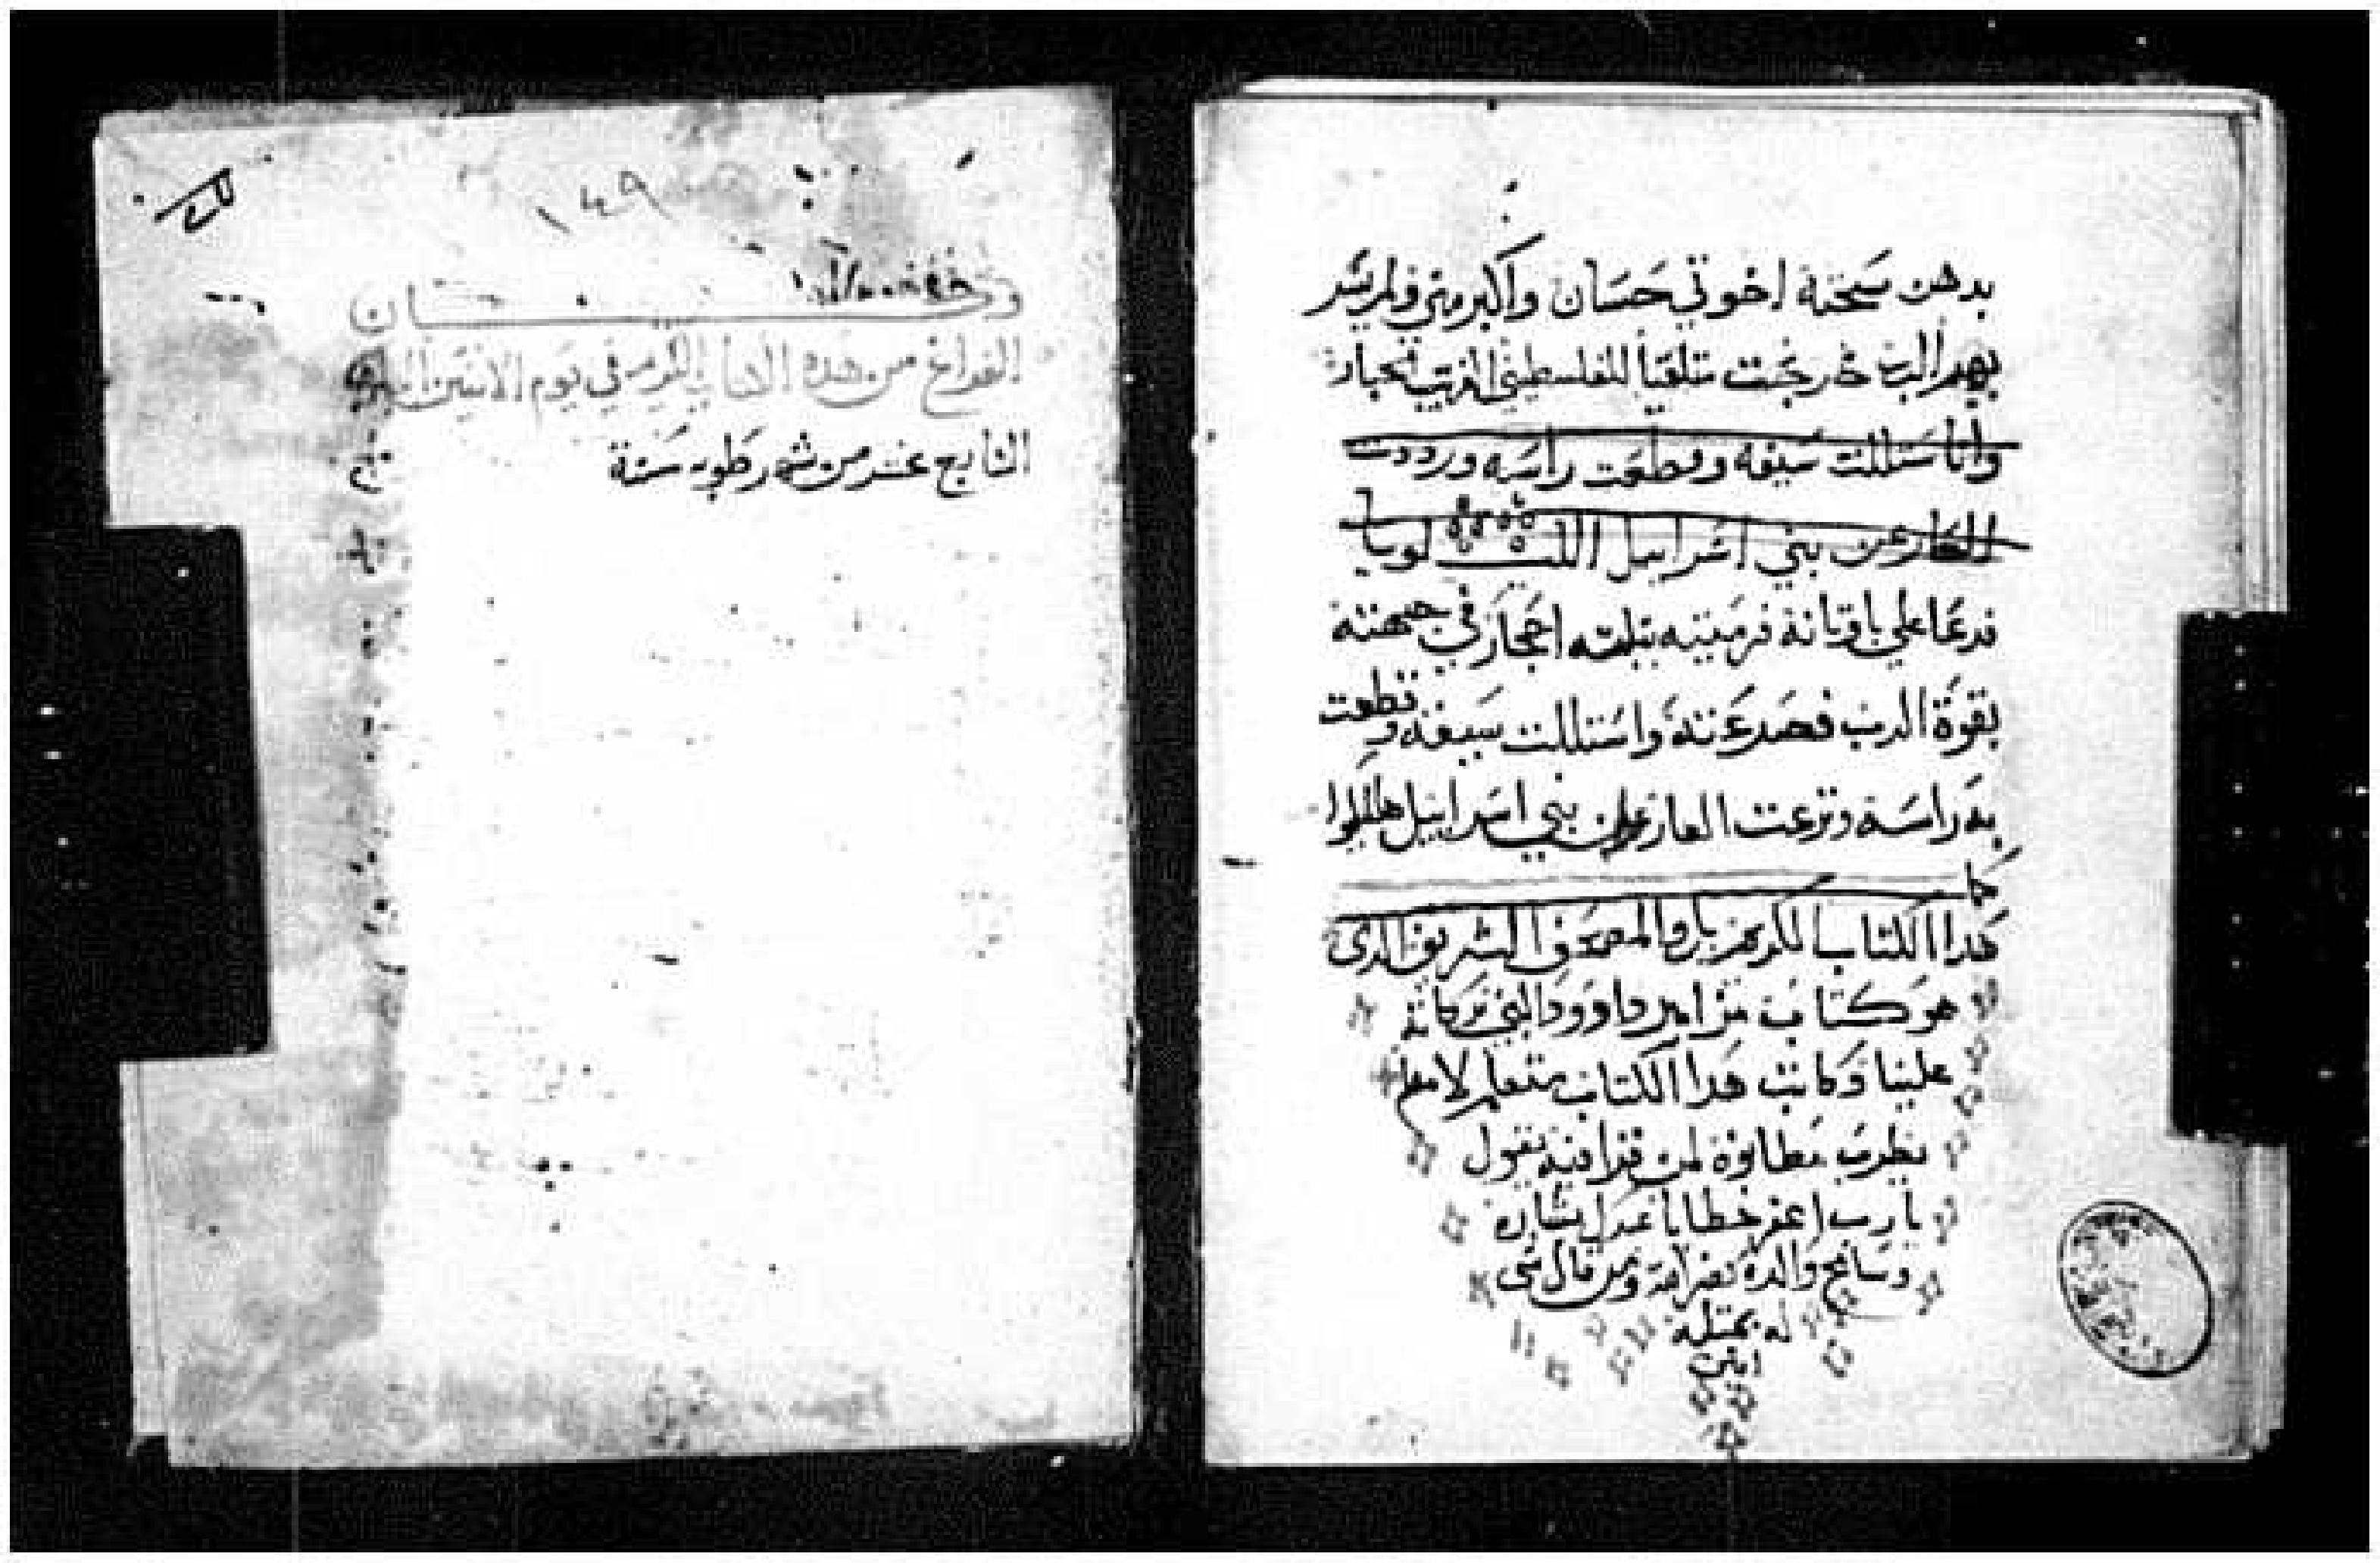 بدهن سَحته اخوتي حَسَان واكبر مني ولم يسر
بهم الرب خرجت متلقيا للفلسطيني الغريب
وانا ستللت سَيفه وقطعت راسَه ورددت
العار عن بني اسرائيل الليلويا
فدعا علي باوثانه فرميته بثلثه احجار في جبهته
بقوة الرب فصرعته واستللت سيفه وقطعت
به راسَه ونزعت العار عن بني اسرائيل هللوا
كمل
هدا الكتاب الكريم والمصحف الشريف الدى
هو كتاب مزامير داوود النبي بركاته
علينا وكاتب هدا الكتاب
يطلب مطانوة لمن قرا فيه يقول
يارب اغفر خطايا
وسامح والده ومن قال شي
له بمتله
امين
١٤٩
وكان
الفراغ من هده الكتاب الكريم في يوم الاتنين
السابع عشر من شهر طوبه سنة